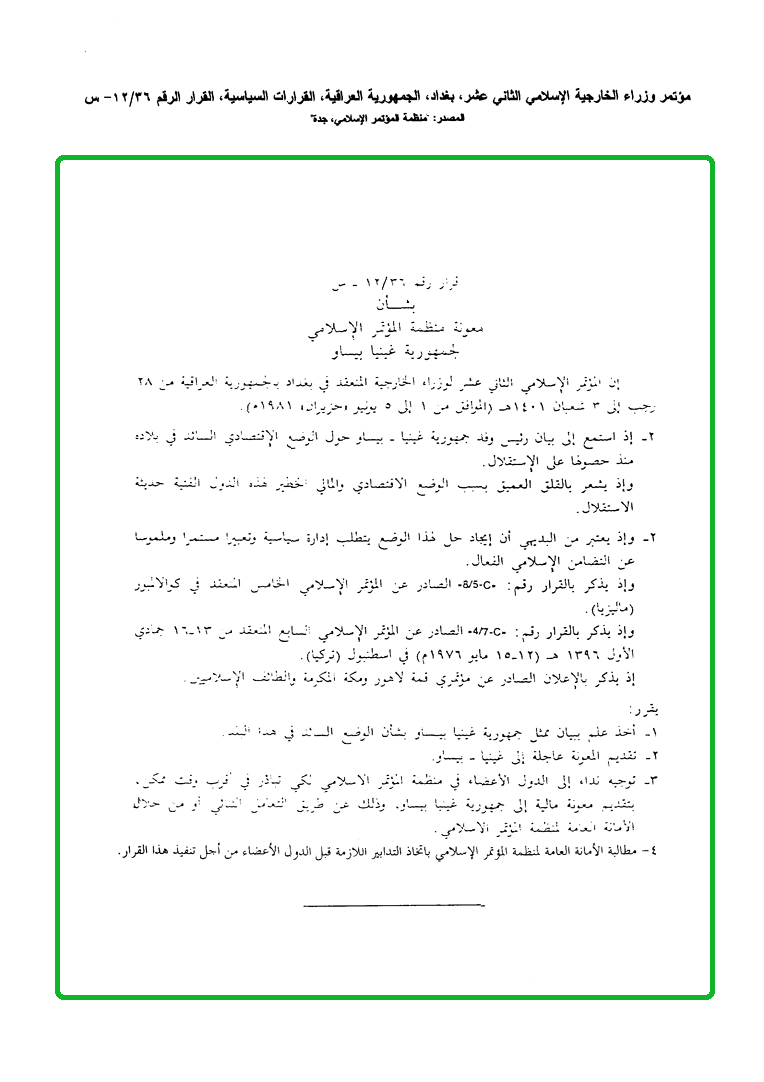 مؤتمر وزراء الخارجية الإسلامي الثاني عشر، بغداد، الجمهورية العراقية، القرارات السياسية، القرار الرقم ١٢/٣٦- س
المصدر: "منظمة المؤتمر الإسلامي، جدة"
قرار رقم ١٢/٣٦ ـ س
بشـــأن
معونة منظمة المؤتمر الإسلامي
لجمهورية غينيا بيساو
إن المؤتمر الإسلامي الثاني عشر لوزراء الخارجية المنعقد في بغداد بالجمهورية العراقية من ٢٨
رجب إلى ٣ شعبان ١٤٠١هـ (الموافق من ١ إلى ٥ يونيو «حزيران» ١٩٨١م).
٢ـ إذ استمع إلى بيان رئيس وفد جمهورية غينيا ـ بيساو حول الوضع الإقتصادي السائد في بلاده
منذ حصولها على الإستقلال.
وإذ يشعر بالقلق العميق بسبب الوضع الاقتصادي والمالي الخطير لهذه الدول الفتية حديثة
الاستقلال.
٢ـ وإذ يعتبر من البديهي أن إيجاد حل لهذا الوضع يتطلب إدارة سياسية وتعبيرا مستمرا وملموسا
عن التضامن الإسلامي الفعال.
وإذ يذكر بالقرار رقم: «8/5-C» الصادر عن المؤتمر الإسلامي الخامس المنعقد في كوالالمبور
(ماليزيا).
وإذ يذكر بالقرار رقم: «4/7-C» الصادر عن المؤتمر الإسلامي السابع المنعقد من ١٣ـ١٦ جمادي
الأول ١٣٩٦ هـ (١٢ـ١٥ مايو ١٩٧٦م) في اسطنبول (تركيا).
إذ يذكر بالإعلان الصادر عن مؤتمري قمة لاهور ومكة المكرمة والطائف الإسلاميين.
يقرر:
١ـ أخذ علم ببيان ممثل جمهورية غينيا بيساو بشأن الوضع السائد في هذا البلد.
٢ـ تقديم المعونة عاجلة إلى غينيا ـ بيساو.
٣ـ توجيه نداء إلى الدول الأعضاء في منظمة المؤتمر الاسلامي لكي تبادر في أقرب وقت ممكن،
بتقديم معونة مالية إلى جمهورية غينيا بيساو، وذلك عن طريق التعامل الثنائي أو من خلال
الأمانة العامة لمنظمة المؤتمر الاسلامي.
٤- مطالبة الأمانة العامة لمنظمة المؤتمر الإسلامي باتخاذ التدابير اللازمة قبل الدول الأعضاء من أجل تنفيذ هذا القرار.